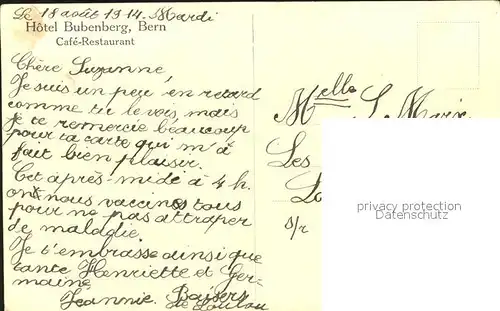 Le 18 août 1914. Mardi
Hôtel Bubenberg, Bern
Café-Restaurant
Chère Suzanne,
Je suis un peu en retard
comme tu le vois, mais
je te remercie beaucoup
pour ta carte qui m'a
fait bien plaisir.
Cet après-midi à 4 h.
on nous vaccine tous
pour ne pas attraper
de maladie.
Je t'embrasse ainsi que
tante Henriette et Ger-
maine.
Jeannie. Baisers
de Loulou
Melle S. Marix
Les
s/r
privacy protection
Datenschutz